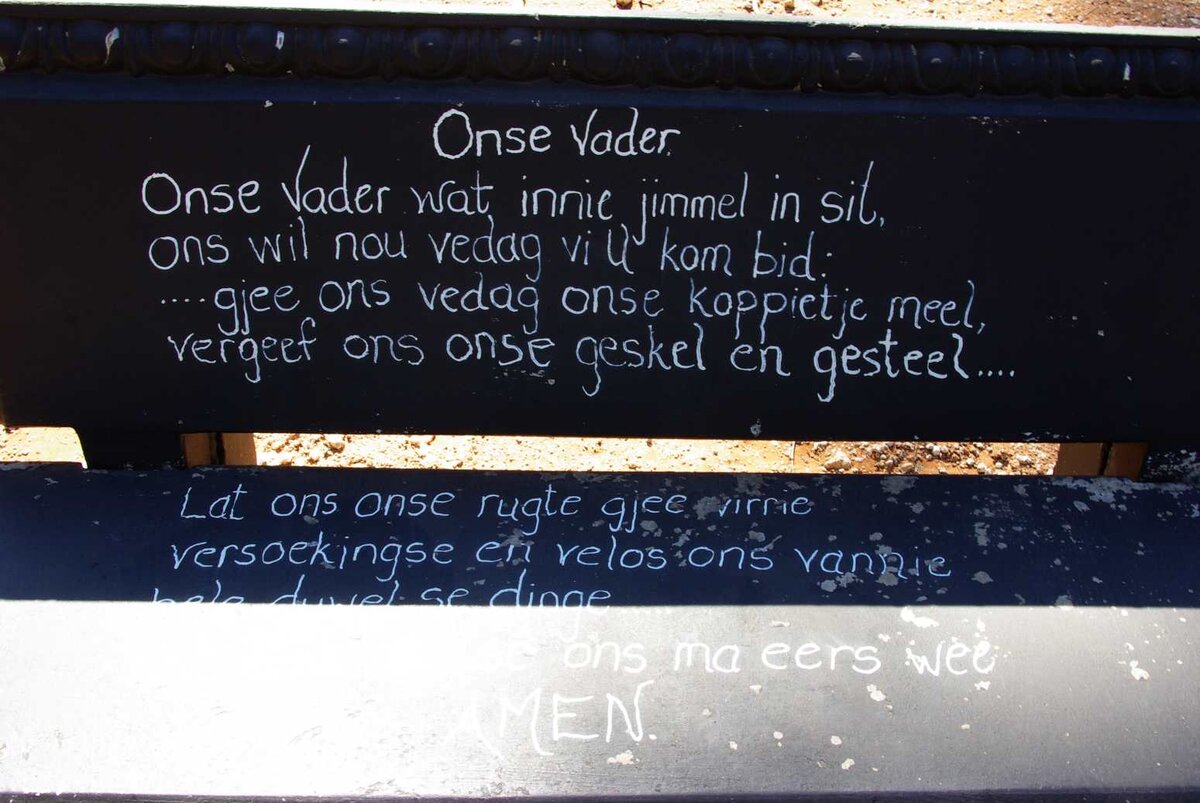 Onse Vader.
Onse Vader wat innie jimmel in sit,
ons wil nou vedag vi U kom bid:
....gjee ons vedag onse koppietje meel,
vergeef ons onse geskel en gesteel....
Lat ons onse rugte gjee virrie
versoekingse en velos ons vannie
hele duwel se dinge
ons ma eers wee
AMEN.